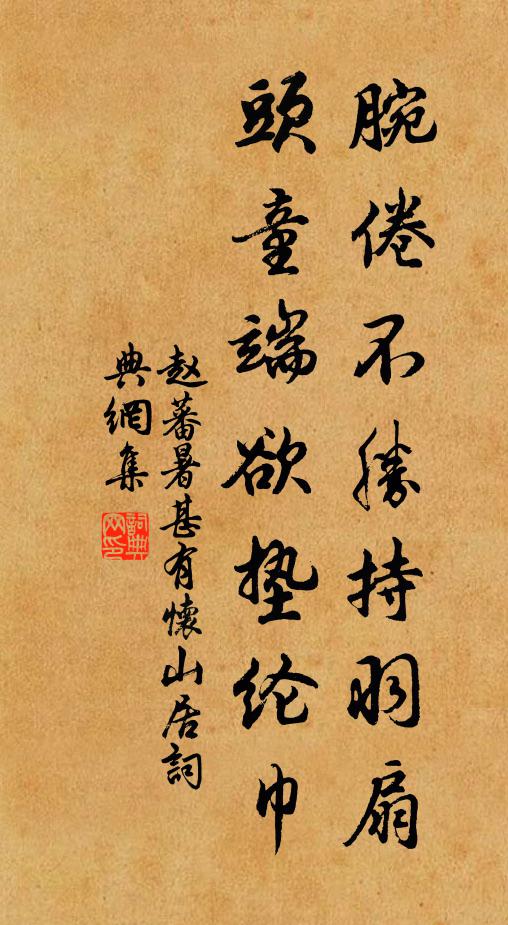 腕倦不勝持羽扇
頭童端欲墊纶巾
赵蕃暑甚有懷山居詞
典網集
詞典網印